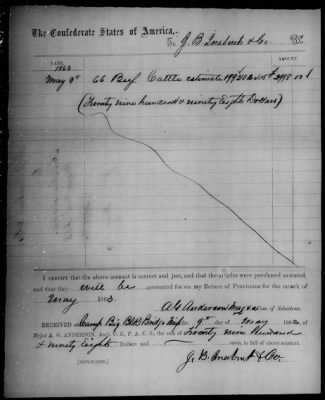 The Confederate States of America,
To J. B. & Co. Dr.
DATE.
1863
May 9th 66 Beef Cattle estimate 199 @ 15 2998 00
(Twenty nine hundred & ninety Eight Dollars)
I CERTIFY that the above account is correct and just, and that the articles were purchased as stated,
and that they will be accounted for on my Return of Provisions for the month of
May 1863.
A G Anderson Maj & Com. of Subsistence.
RECEIVED at Camp Big Blk Bridge Miss the 9th day of May 1863, of
Major A. G. ANDERSON, Asst. C. S., P. A. C. S., the sum of Twenty nine Hundred
& ninety Eight Dollars and cents, in full of above account.
J. B. & Co.
(DUPLICATES.)